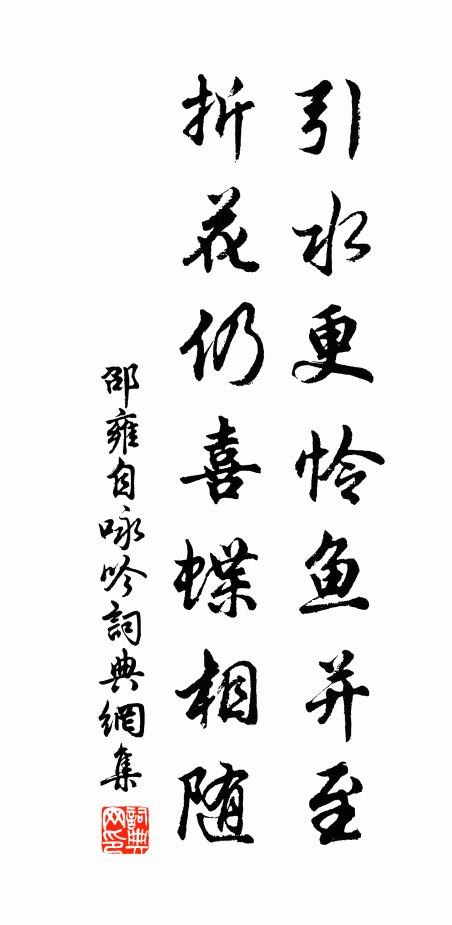 引水更怜鱼并至
折花仍喜蝶相随
邵雍自咏吟詞典網集
詞典网印